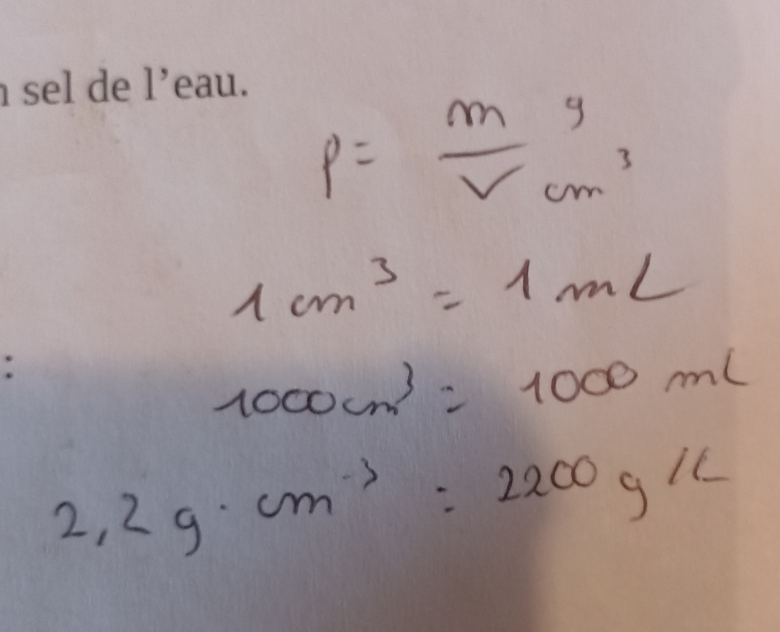 sel de l'eau.
ρ = m/V g/cm³
1 cm³ = 1 mL
:
1000 cm³ = 1000 mL
2,2 g · cm⁻³ = 2200 g/L